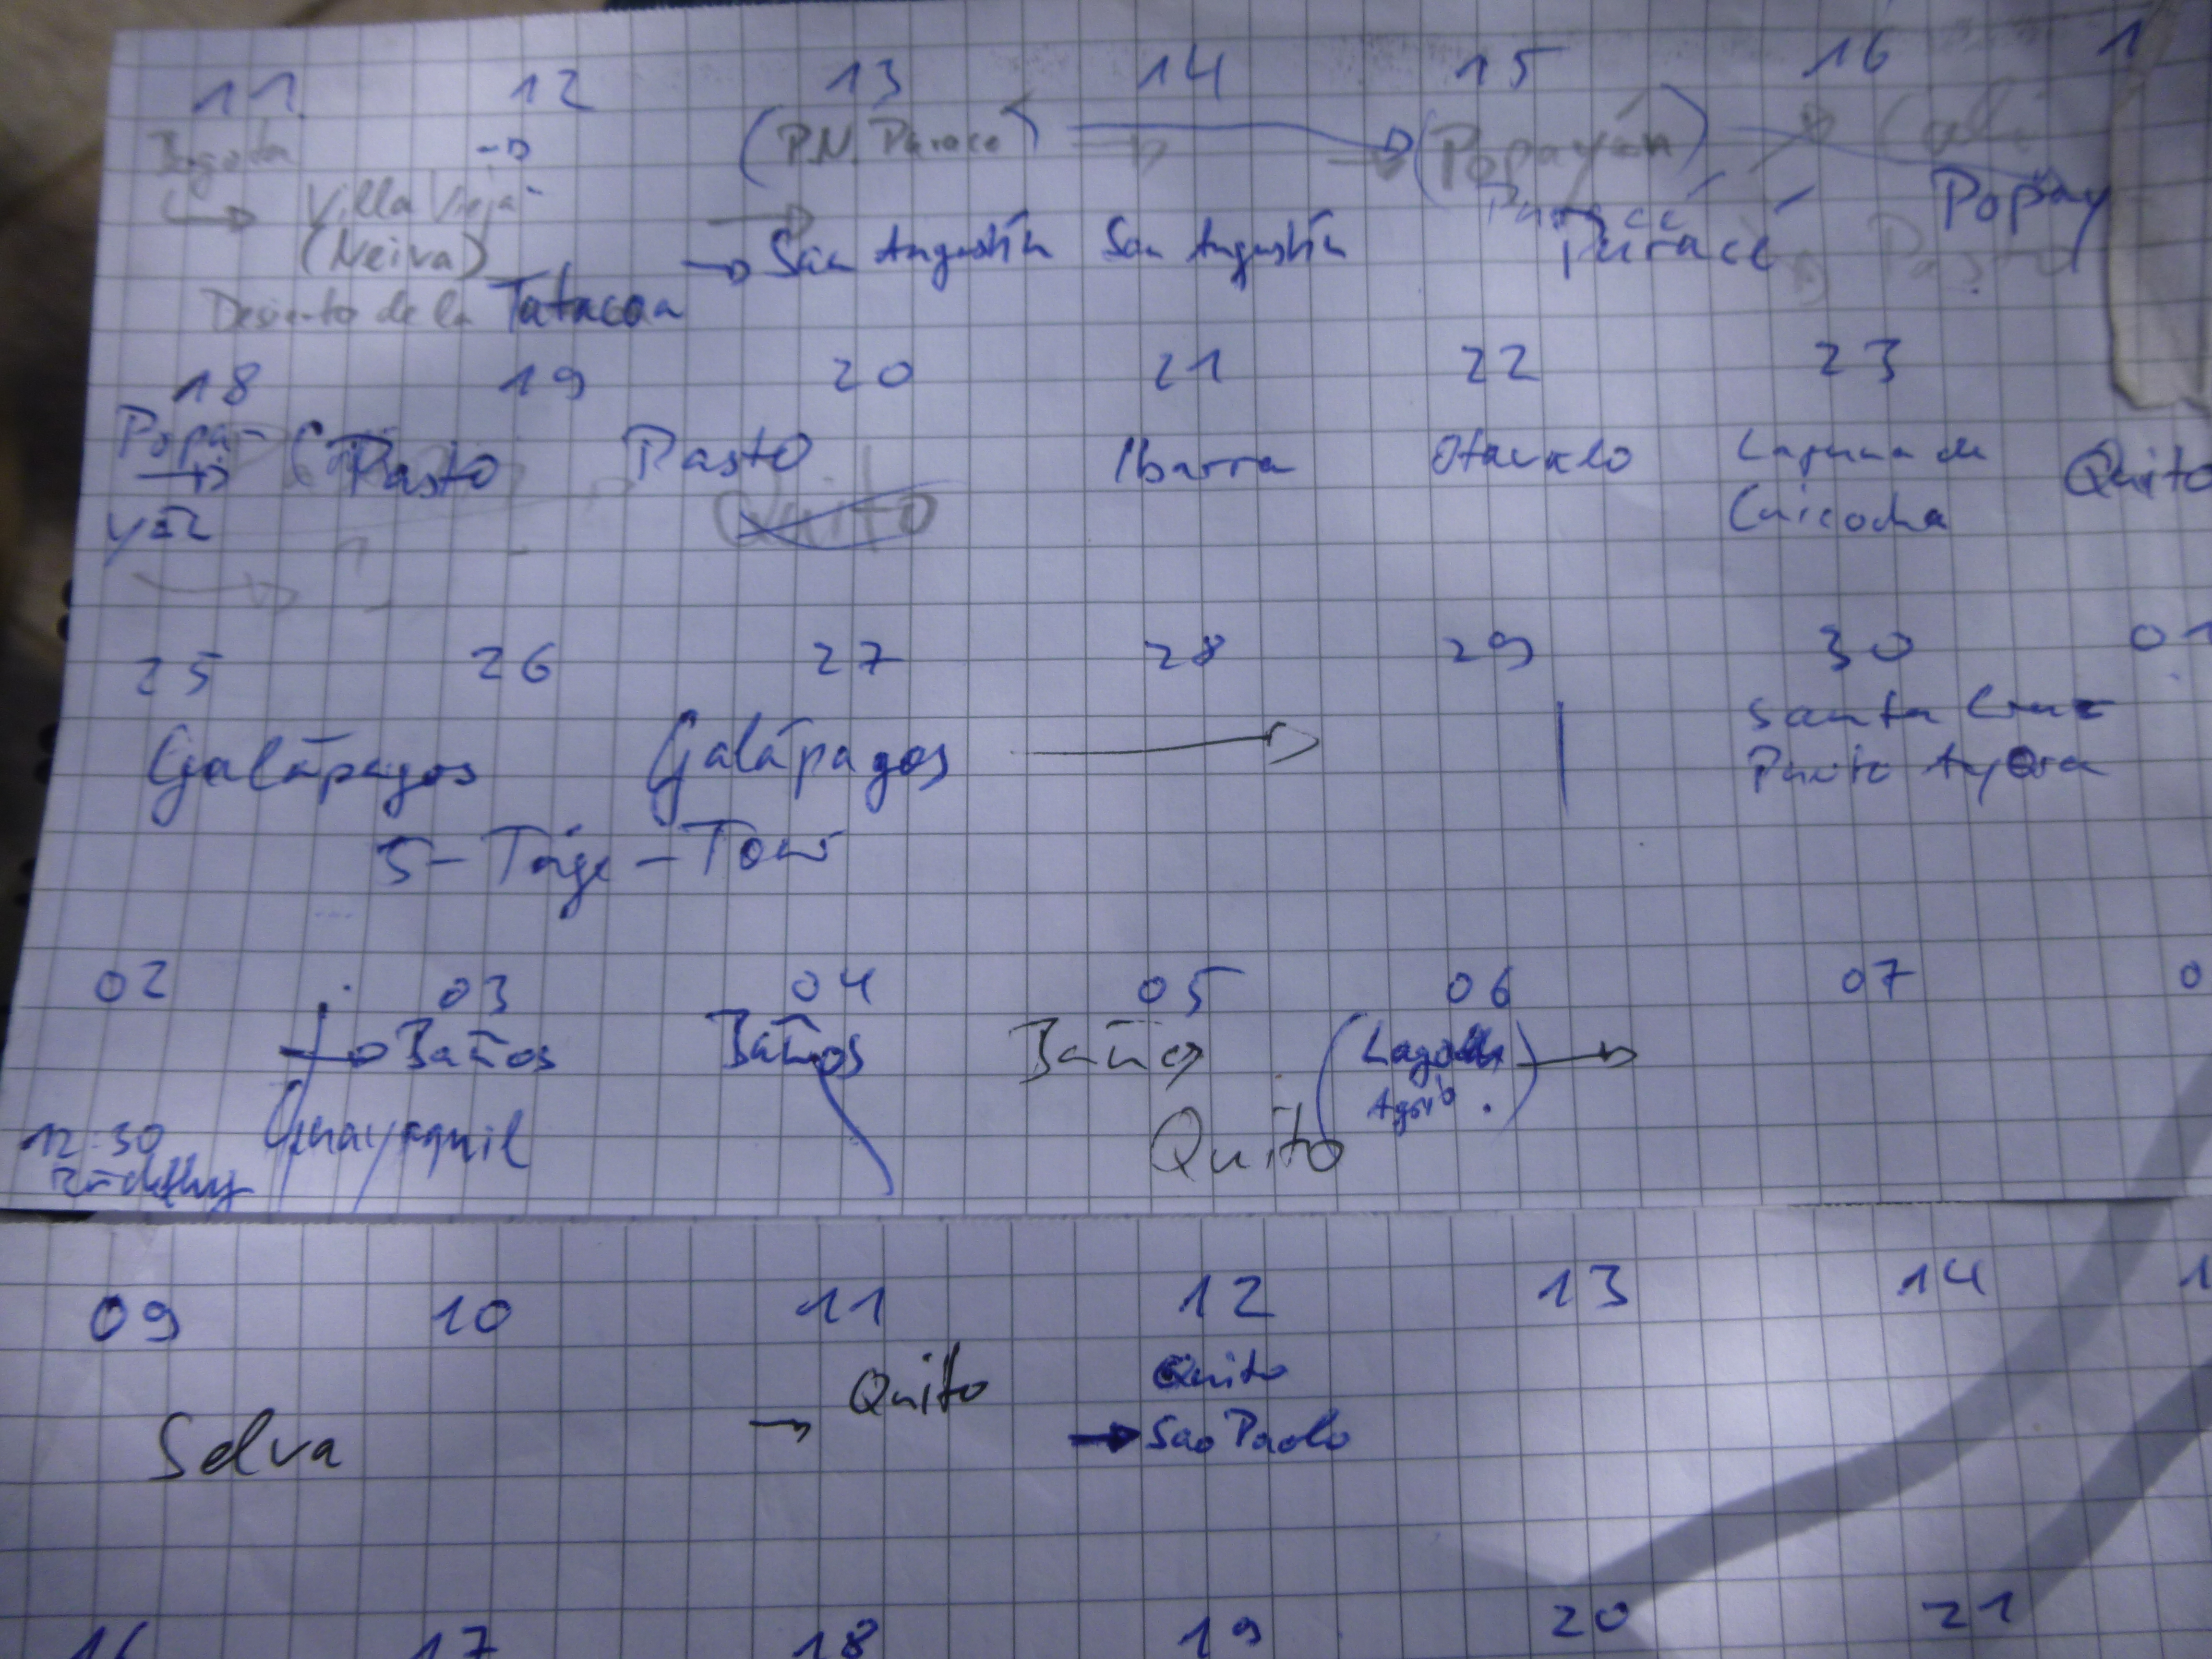 11 12 13 14 15 16 1
Bogota -> (P.N. Purace) -> -> (Popayán) -> Cali
-> Villa Vieja Puracé Popay
(Neiva) -> San Angustín San Angustín Puracé Pasto
Desierto de la Tatacoa
18 19 20 21 22 23
Popa- Pasto Pasto Ibarra Otavalo Laguna de Quito
yán Quito Cuicocha
25 26 27 28 29 30 01
Galápagos Galápagos -> Santa Cruz
Puerto Ayora
5-Tage-Tour
02 03 04 05 06 07 0
-> Baños Baños Baños (Lago ->
Agrio.)
12:30 Guayaquil Quito
Rückflug
09 10 11 12 13 14 1
Quito Quito
Selva -> -> Sao Paolo
16 17 18 19 20 21